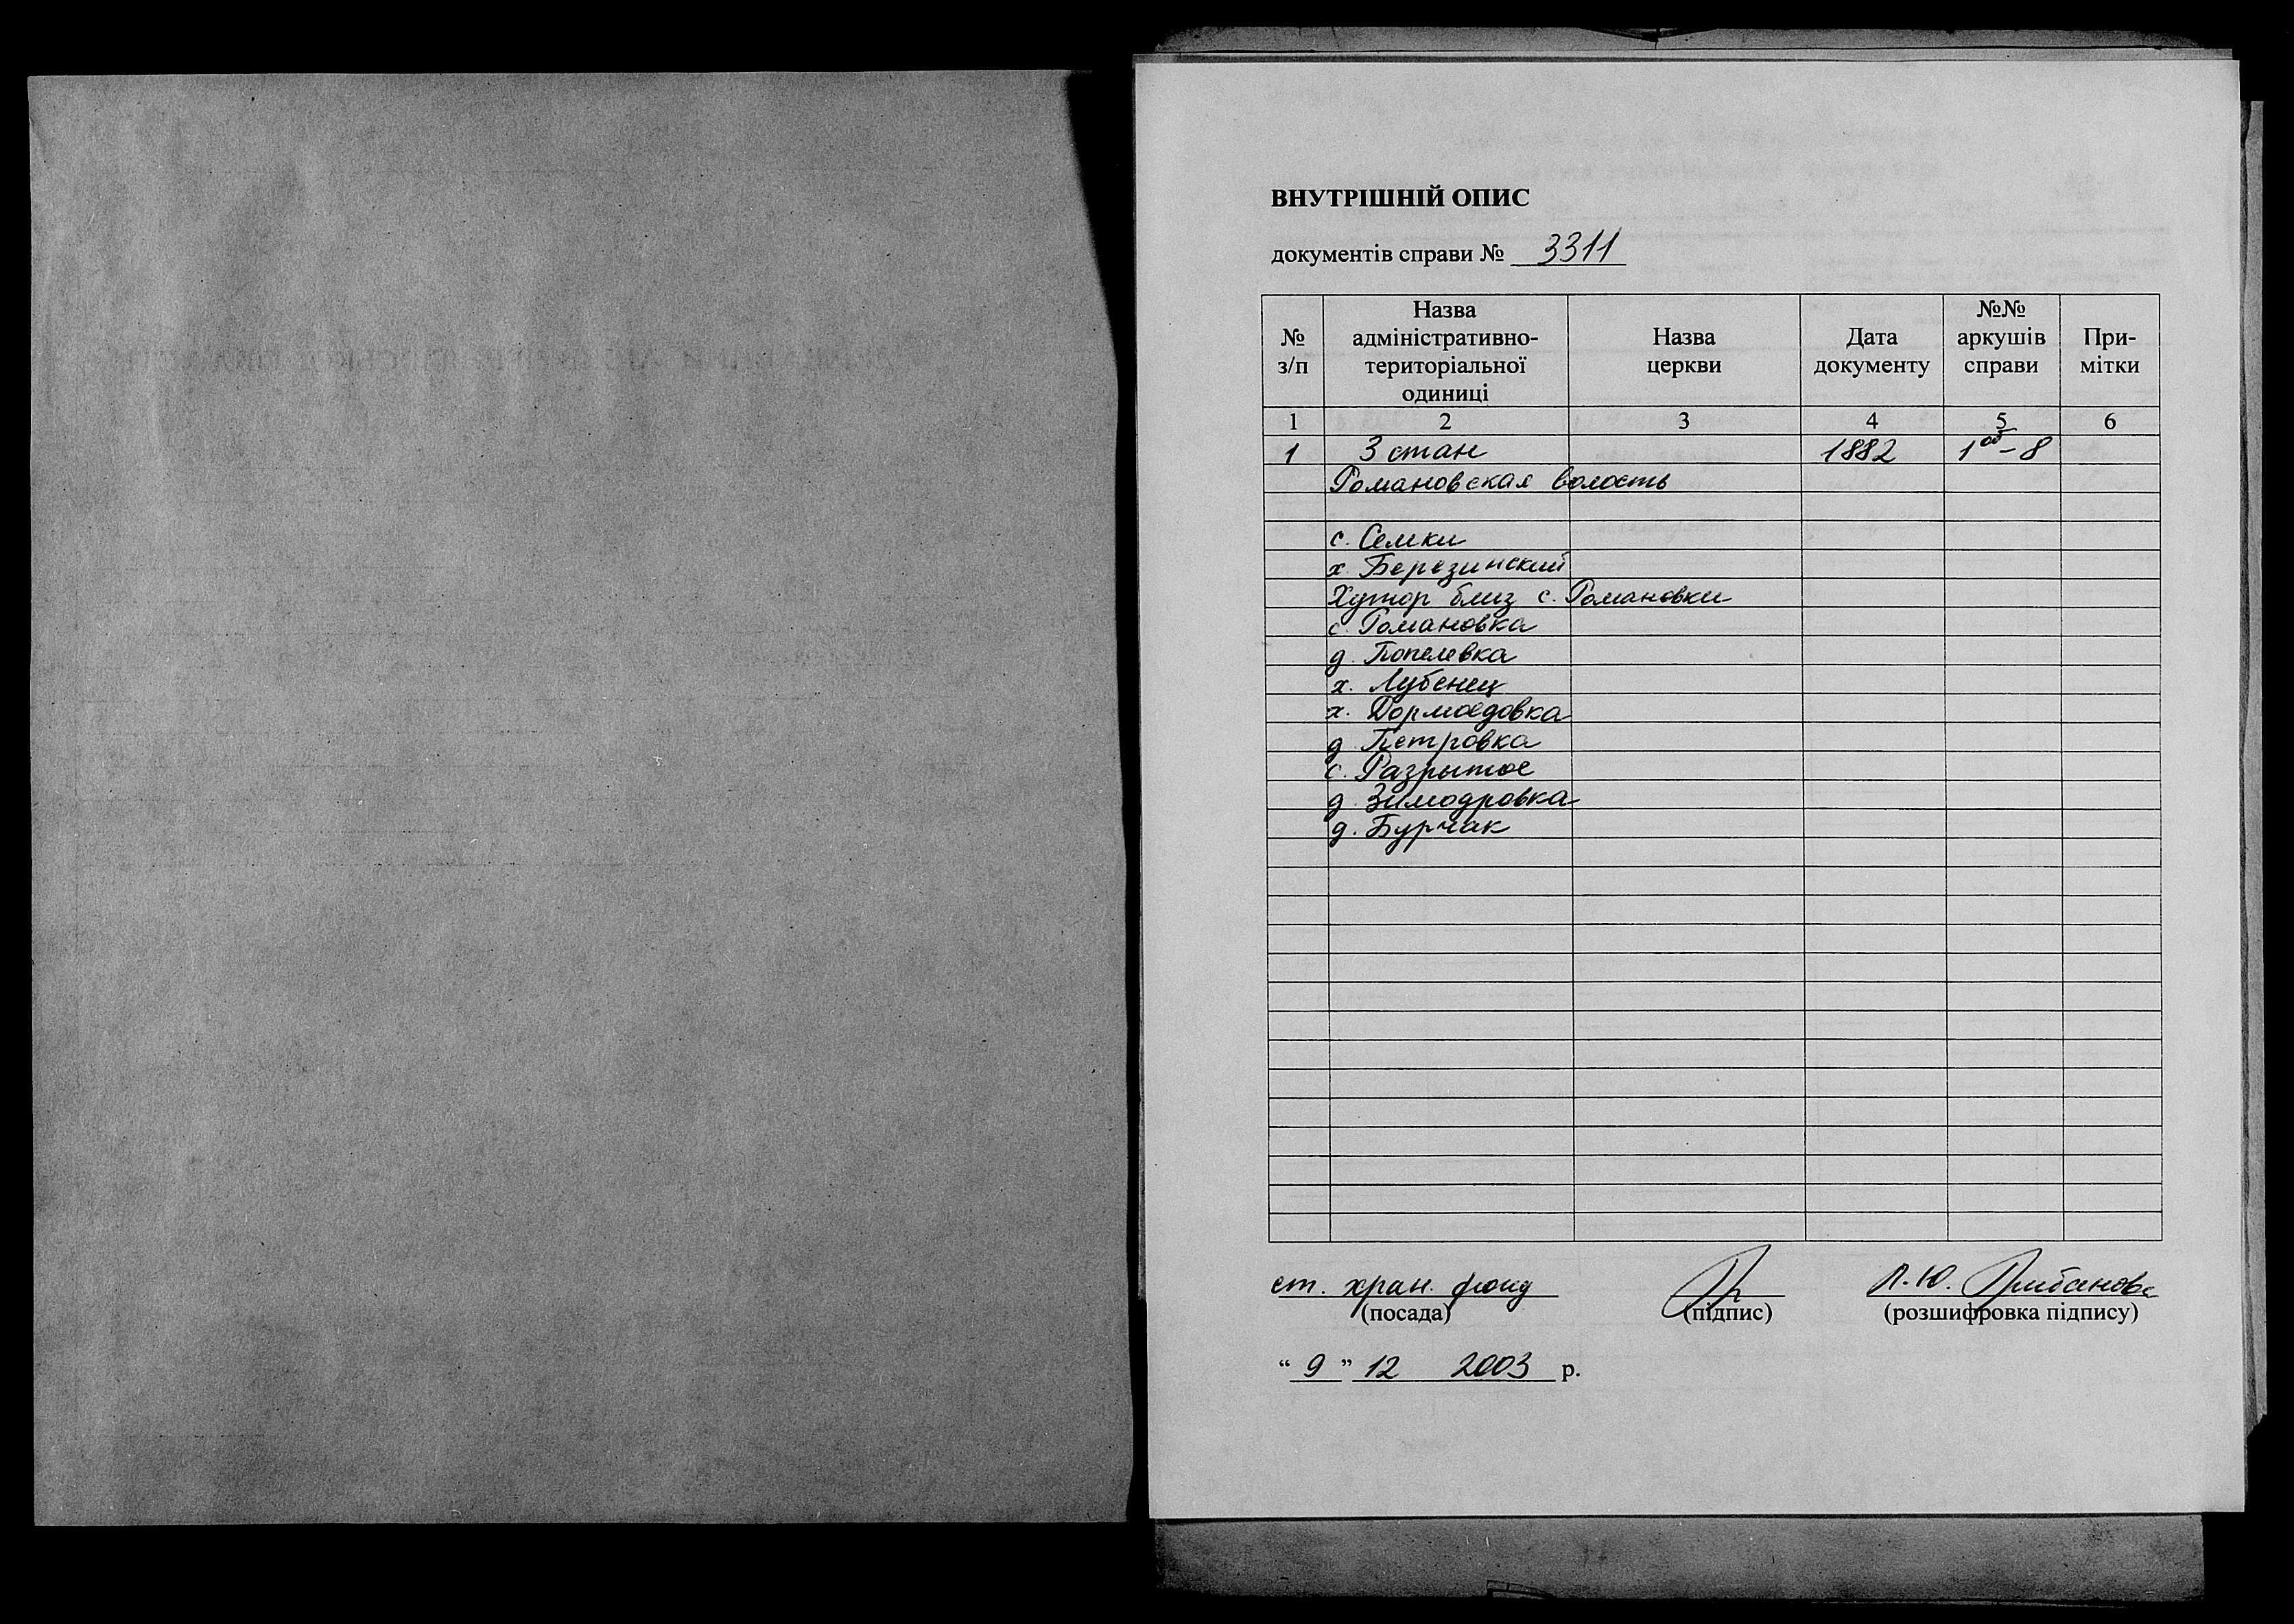 ВНУТРІШНІЙ ОПИС
документів справи № 3311
№ з/п | Назва адміністративно-територіальної одиниці | Назва церкви | Дата документу | №№ аркушів справи | При-мітки
1 | 2 | 3 | 4 | 5 | 6
1 | 3 стан | | 1882 | 1об–8 |
Романовская волость
с. Семки
х. Березинский
Хутор близ с. Романовки
с. Романовка
д. Попелевка
х. Лубенец
х. Дормоедовка
д. Петровка
с. Разрытое
д. Зимодровка
д. Бурчак
ст. хран. фонд
(посада) (підпис) (розшифровка підпису)
Л.Ю.
“ 9 ” 12 2003 р.